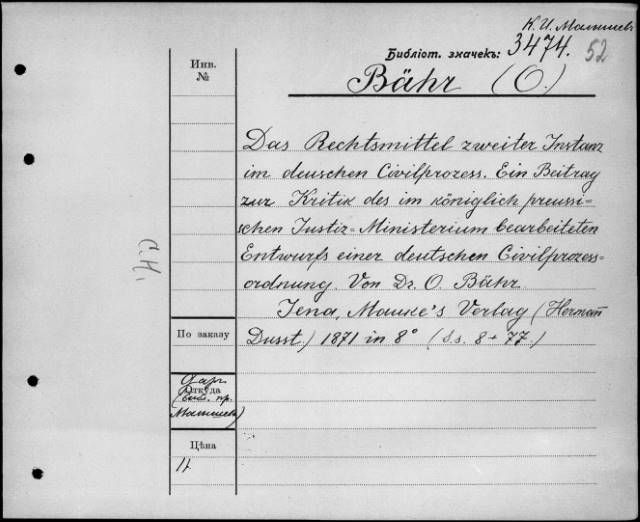 К. И. Малышев
Библіот. значекъ: 3474. 52
Инв.
№
Bähr (O.)
Das Rechtsmittel zweiter Instanz
im deutschen Civilprozess. Ein Beitrag
zur Kritik des im königlich preussi-
schen Justiz-Ministerium bearbeiteten
Entwurfs einer deutschen Civilprozess-
ordnung. Von Dr. O. Bähr.
Jena, Mauke's Verlag (Hermañ
Dusst.) 1871 in 8° (S.s. 8 + 77.)
По заказу
Даръ
Откуда
(библ. пр.
Малышева)
Цѣна